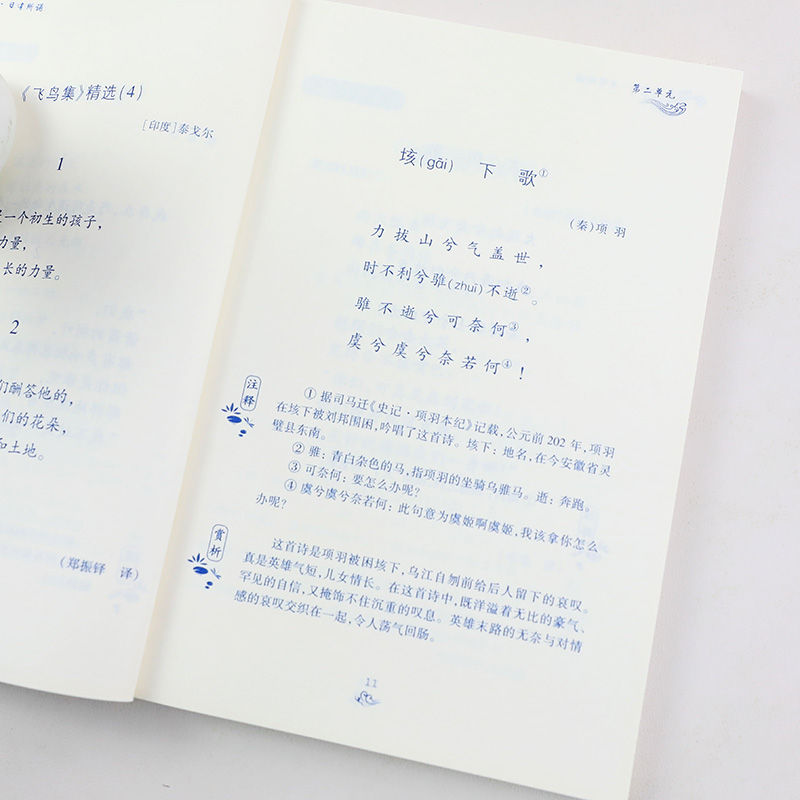 ·日有所诵
《飞鸟集》精选(4)
[印度]泰戈尔
1
是一个初生的孩子，
力量，
长的力量。
2
们酬答他的，
们的花朵，
和土地。
(郑振铎 译)
第二单元
垓(gāi) 下 歌①
(秦)项 羽
力拔山兮气盖世，
时不利兮骓(zhuī)不逝②。
骓不逝兮可奈何③，
虞兮虞兮奈若何④！
注释
① 据司马迁《史记·项羽本纪》记载，公元前 202 年，项羽
在垓下被刘邦围困，吟唱了这首诗。垓下：地名，在今安徽省灵
璧县东南。
② 骓：青白杂色的马，指项羽的坐骑乌骓马。逝：奔跑。
③ 可奈何：要怎么办呢？
④ 虞兮虞兮奈若何：此句意为虞姬啊虞姬，我该拿你怎么
办呢？
赏析
这首诗是项羽被困垓下，乌江自刎前给后人留下的哀叹。
真是英雄气短，儿女情长。在这首诗中，既洋溢着无比的豪气、
罕见的自信，又掩饰不住沉重的叹息。英雄末路的无奈与对情
感的哀叹交织在一起，令人荡气回肠。
11